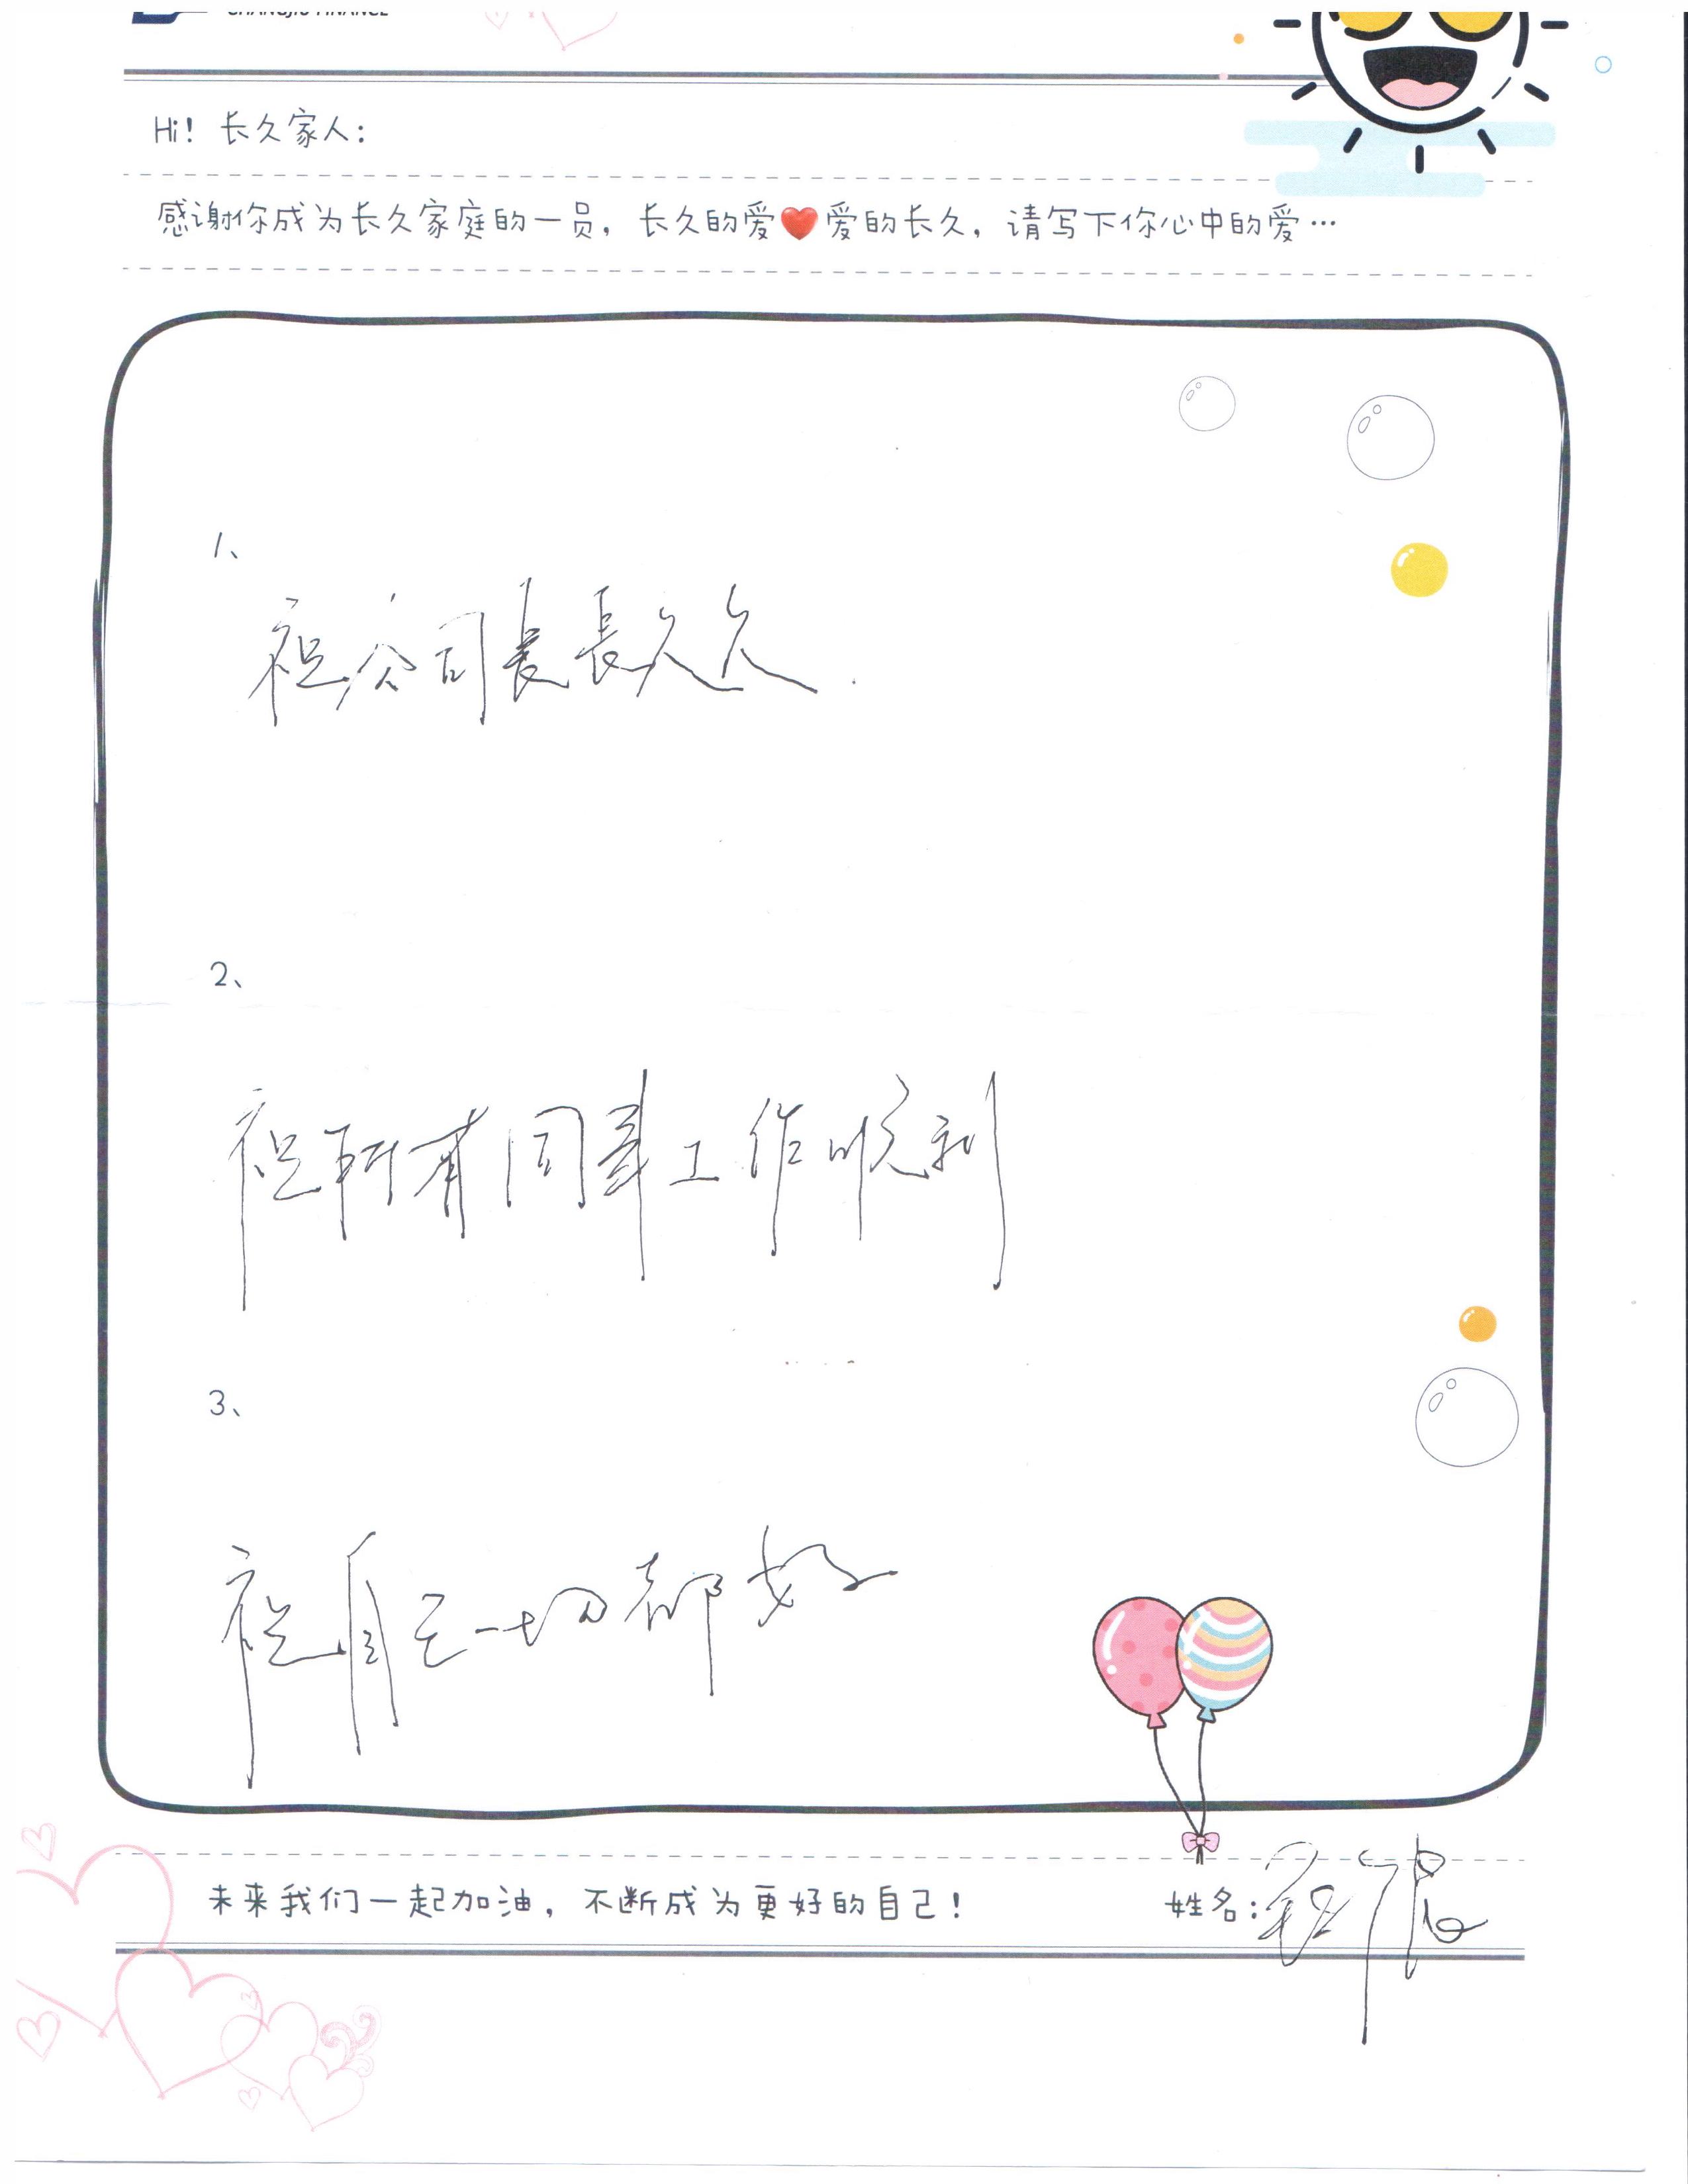 CHANGJIU FINANCE
Hi! 长久家人:
感谢你成为长久家庭的一员, 长久的爱❤爱的长久, 请写下你心中的爱…
1、
祝公司長長久久.
2、
祝所有同事工作顺利
3、
祝自己一切都好
未来我们一起加油, 不断成为更好的自己!
姓名: